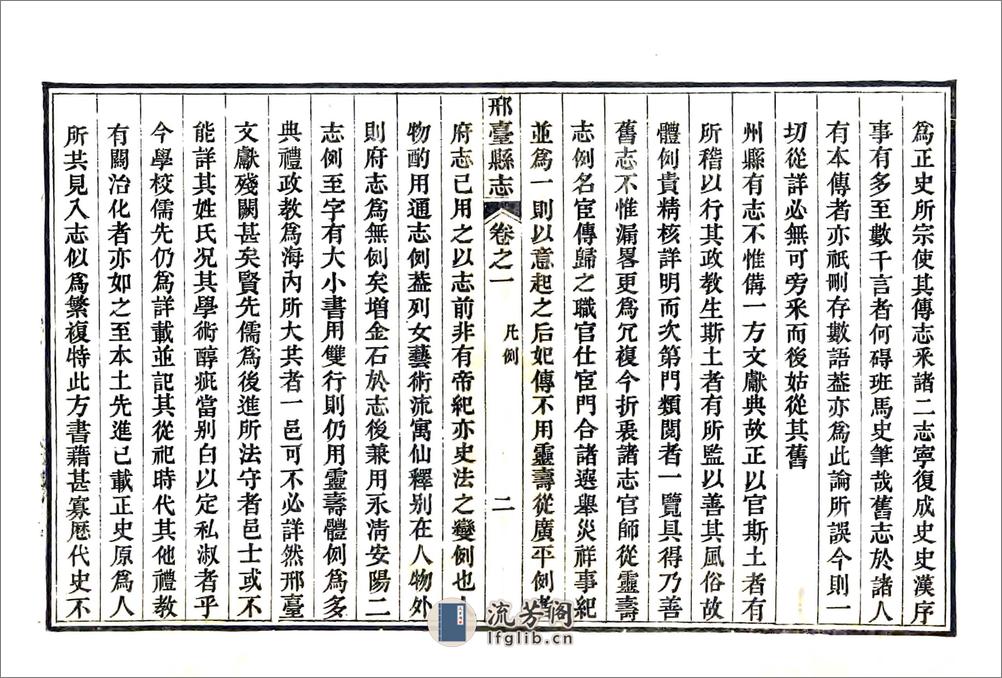 爲正史所宗使其傳志釆諸二志寧復成史史漢序
事有多至數千言者何碍班馬史筆哉舊志於諸人
有本傳者亦祇刪存數語葢亦爲此論所誤今則一
切從詳必無可旁釆而後姑從其舊
州縣有志不惟備一方文獻典故正以官斯土者有
所稽以行其政教生斯土者有所監以善其風俗故
體例貴精核詳明而次第門類閱者一覽具得乃善
舊志不惟漏畧更爲冗複今折衷諸志官師從靈壽
志例名宦傳歸之職官仕宦門合諸選舉災祥事紀
並爲一則以意起之后妃傳不用靈壽從廣平例者
邢臺縣志 卷之一 凡例 二
府志已用之以志前非有帝紀亦史法之變例也人
物酌用通志例葢列女藝術流寓仙釋别在人物外
則府志爲無例矣增金石於志後兼用永淸安陽二
志例至字有大小書用雙行則仍用靈壽體例爲多
典禮政教爲海內所大共者一邑可不必詳然邢臺
文獻殘闕甚矣賢先儒爲後進所法守者邑士或不
能詳其姓氏况其學術醇疵當别白以定私淑者乎
今學校儒先仍爲詳載並記其從祀時代其他禮教
有關治化者亦如之至本土先進已載正史原爲人
所共見入志似爲繁複特此方書藉甚寡歷代史不
流芳阁
lfglib.cn